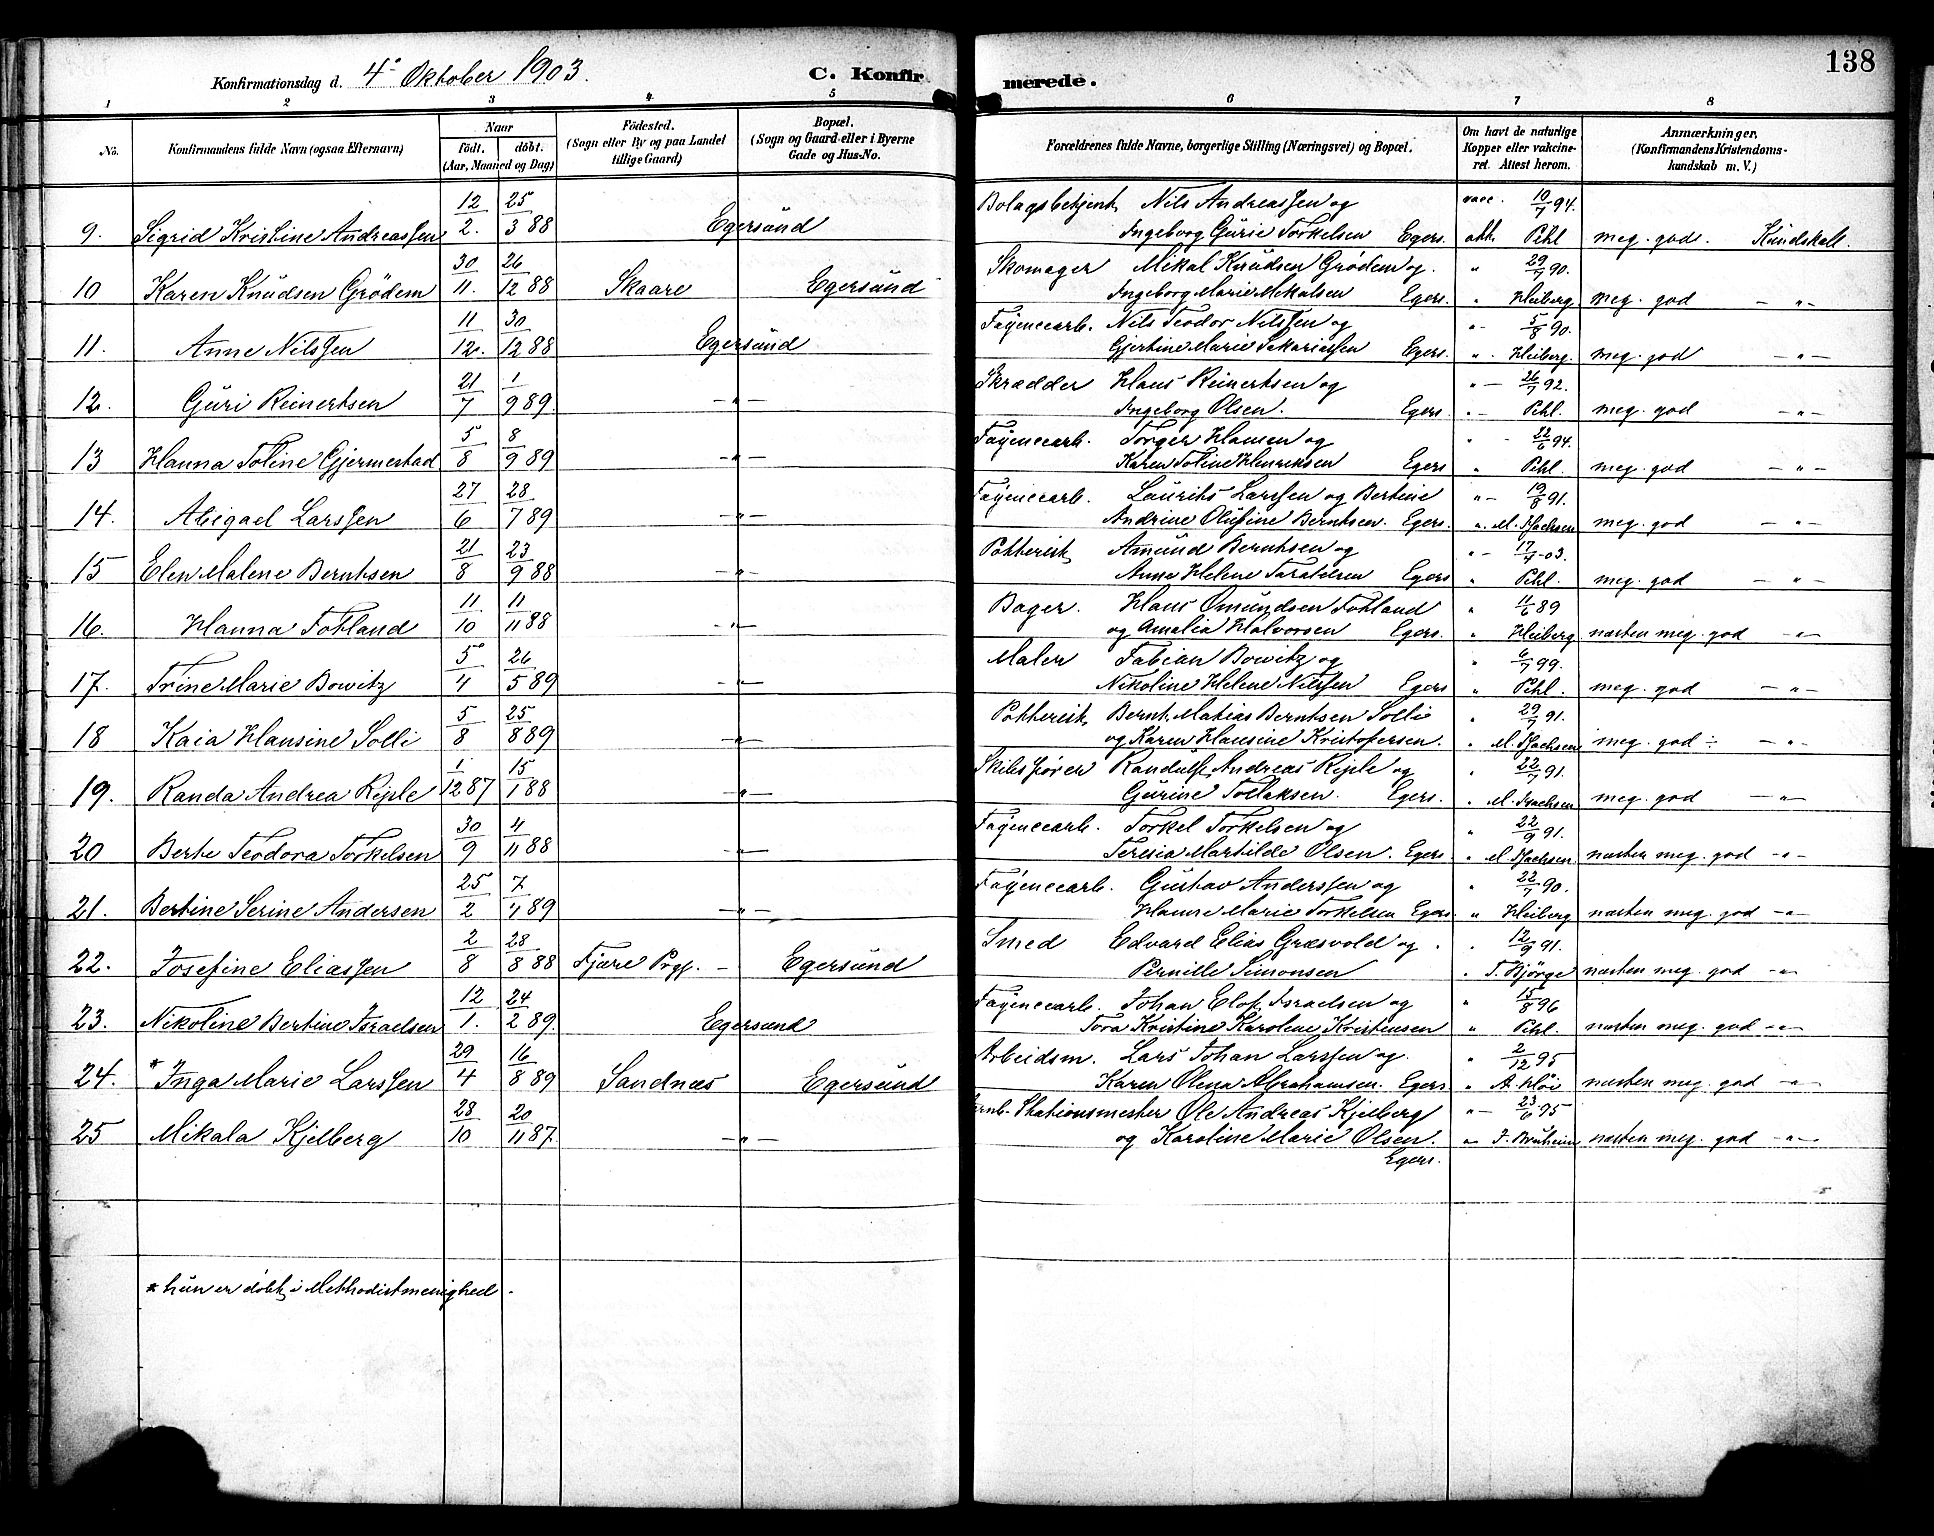 138
Konfirmationsdag d. 4de Oktober 1903.
C. Konfirmerede.
1 2 3 4 5 6 7 8
No.
Konfirmandens fulde Navn (ogsaa Efternavn)
Naar
födt. döbt.
(Aar, Maaned og Dag)
Födested.
(Sogn eller By og paa Landet
tillige Gaard)
Bopæl.
(Sogn og Gaard eller i Byerne
Gade og Hus-No.
Forældrenes fulde Navne, borgerlige Stilling (Næringsvei) og Bopæl.
Om havt de naturlige
Kopper eller vakcine-
ret. Attest herom.
Anmærkninger,
(Konfirmandens Kristendoms-
kundskab m. V.)
12 25 Bolagsbetjent Nils Andreassen og vacc. 10/7 94.
9. Sigrid Kristine Andreassen 2. 3 88 Egersund Ingeborg Gurie Torkelsen Egers. att. Pihl meg. god. Kundskab.
30 26 Skomager Mikal Knudsen Grødem og " 29/7 90.
10 Karen Knudsen Grödem 11. 12 88 Skaare Egersund Ingeborg Marie Mikalsen Egers. " Heiberg meg. god — " —
11 30 Fayencearb. Nils Teodor Nilssen og " 5/8 90.
11. Anne Nilssen 12. 12 88 Egersund Gjertine Marie Sakariassen Egers. " Heiberg. meg. god — " —
21 1 Skrædder Hans Reinertsen og " 26/7 92.
12. Guri Reinertsen 7 9 89 — " — Ingeborg Olsen. Egers. " Pihl. meg. god — " —
5 8 Fayencearb. Torger Hansen og " 22/6 94.
13 Hanna Toline Gjermestad 8 9 89 — " — Karen Toline Henriksen Egers " Pihl. meg. god — " —
27 28 Fayencearb. Laurits Larssen og Bertine " 19/8 91.
14. Abigael Larssen 6 7 89 — " — Andrine Olufine Berntsen. Egers. " M. Isachsen meg. god — " —
21 23 Potterist Amund Berntsen og " 17/7 03.
15 Elen Malene Berntsen 8 9 88 — " — Anne Helene Egers " Pihl. meg. god — " —
11 11 Bager. Hans Omundsen Fotland " 11/6 89
16. Hanna Fotland 10 11 88 — " — og Amalia Halvorsen Egers. " Heiberg næsten meg. god — " —
5 26 Maler Fabian Bowitz og " 6/7 99.
17. Trine Marie Bowitz 4 5 89 — " — Nikoline Helene Nilssen Egers " Pihl. meg. god — " —
5 25 Potterist Bernt Matias Berntsen Solli " 29/7 91.
18 Kaia Hansine Solli 8 8 89 — " — og Karen Hansine Kristofersen. " M. Isachsen meg. god ÷ — " —
1 15 Skibsfører Randulf Andreas Reple og " 22/7 91.
19. Randa Andrea Reple 12 87 1 88 — " — Gurine Tollaksen. Egers. " M. Isachsen meg. god — " —
30 4 Fayencearb. Torkel Torkelsen og " 22/9 91.
20 Berte Teodora Torkelsen 9 11 88 — " — Teresia Martilde Olsen. Egers " M. Isachsen. næsten meg. god — " —
25 7 Fayencearb. Gustav Anderssen og " 22/7 90.
21. Bertine Serine Andersen 2 4 89 — " — Hanne Marie Torkelsen Egers " Heiberg næsten meg. god — " —
2 28 Smed Edvard Elias Græsvold og " 12/9 91.
22. Josefine Eliassen 8 8 88 Fjære Prgj. — Egersund Pernille Simonsen " T. Bjørge næsten meg. god — " —
12 24 Fayencearb. Johan Elof Israelsen og " 15/8 96
23. Nikoline Bertine Israelsen 1. 2 89. Egersund Tora Kristine Karolene Kristensen " Pihl. næsten meg. god — " —
29 16 Arbeidsm. Lars Johan Larssen og. " 2/12 95
24. * Inga Marie Larssen 4 8 89 Sandnæs Egersund Karen Olena Abrahamsen. Egers " næsten meg. god — " —
28 20 Jernb. Stationsmester Ole Andreas Kjelberg " 23/6 95
25 Mikala Kjelberg 10 11 87. — " — og Karoline Marie Olsen. " næsten meg. god — " —
Egers.
* hun er døbt i Methodistmenighed.